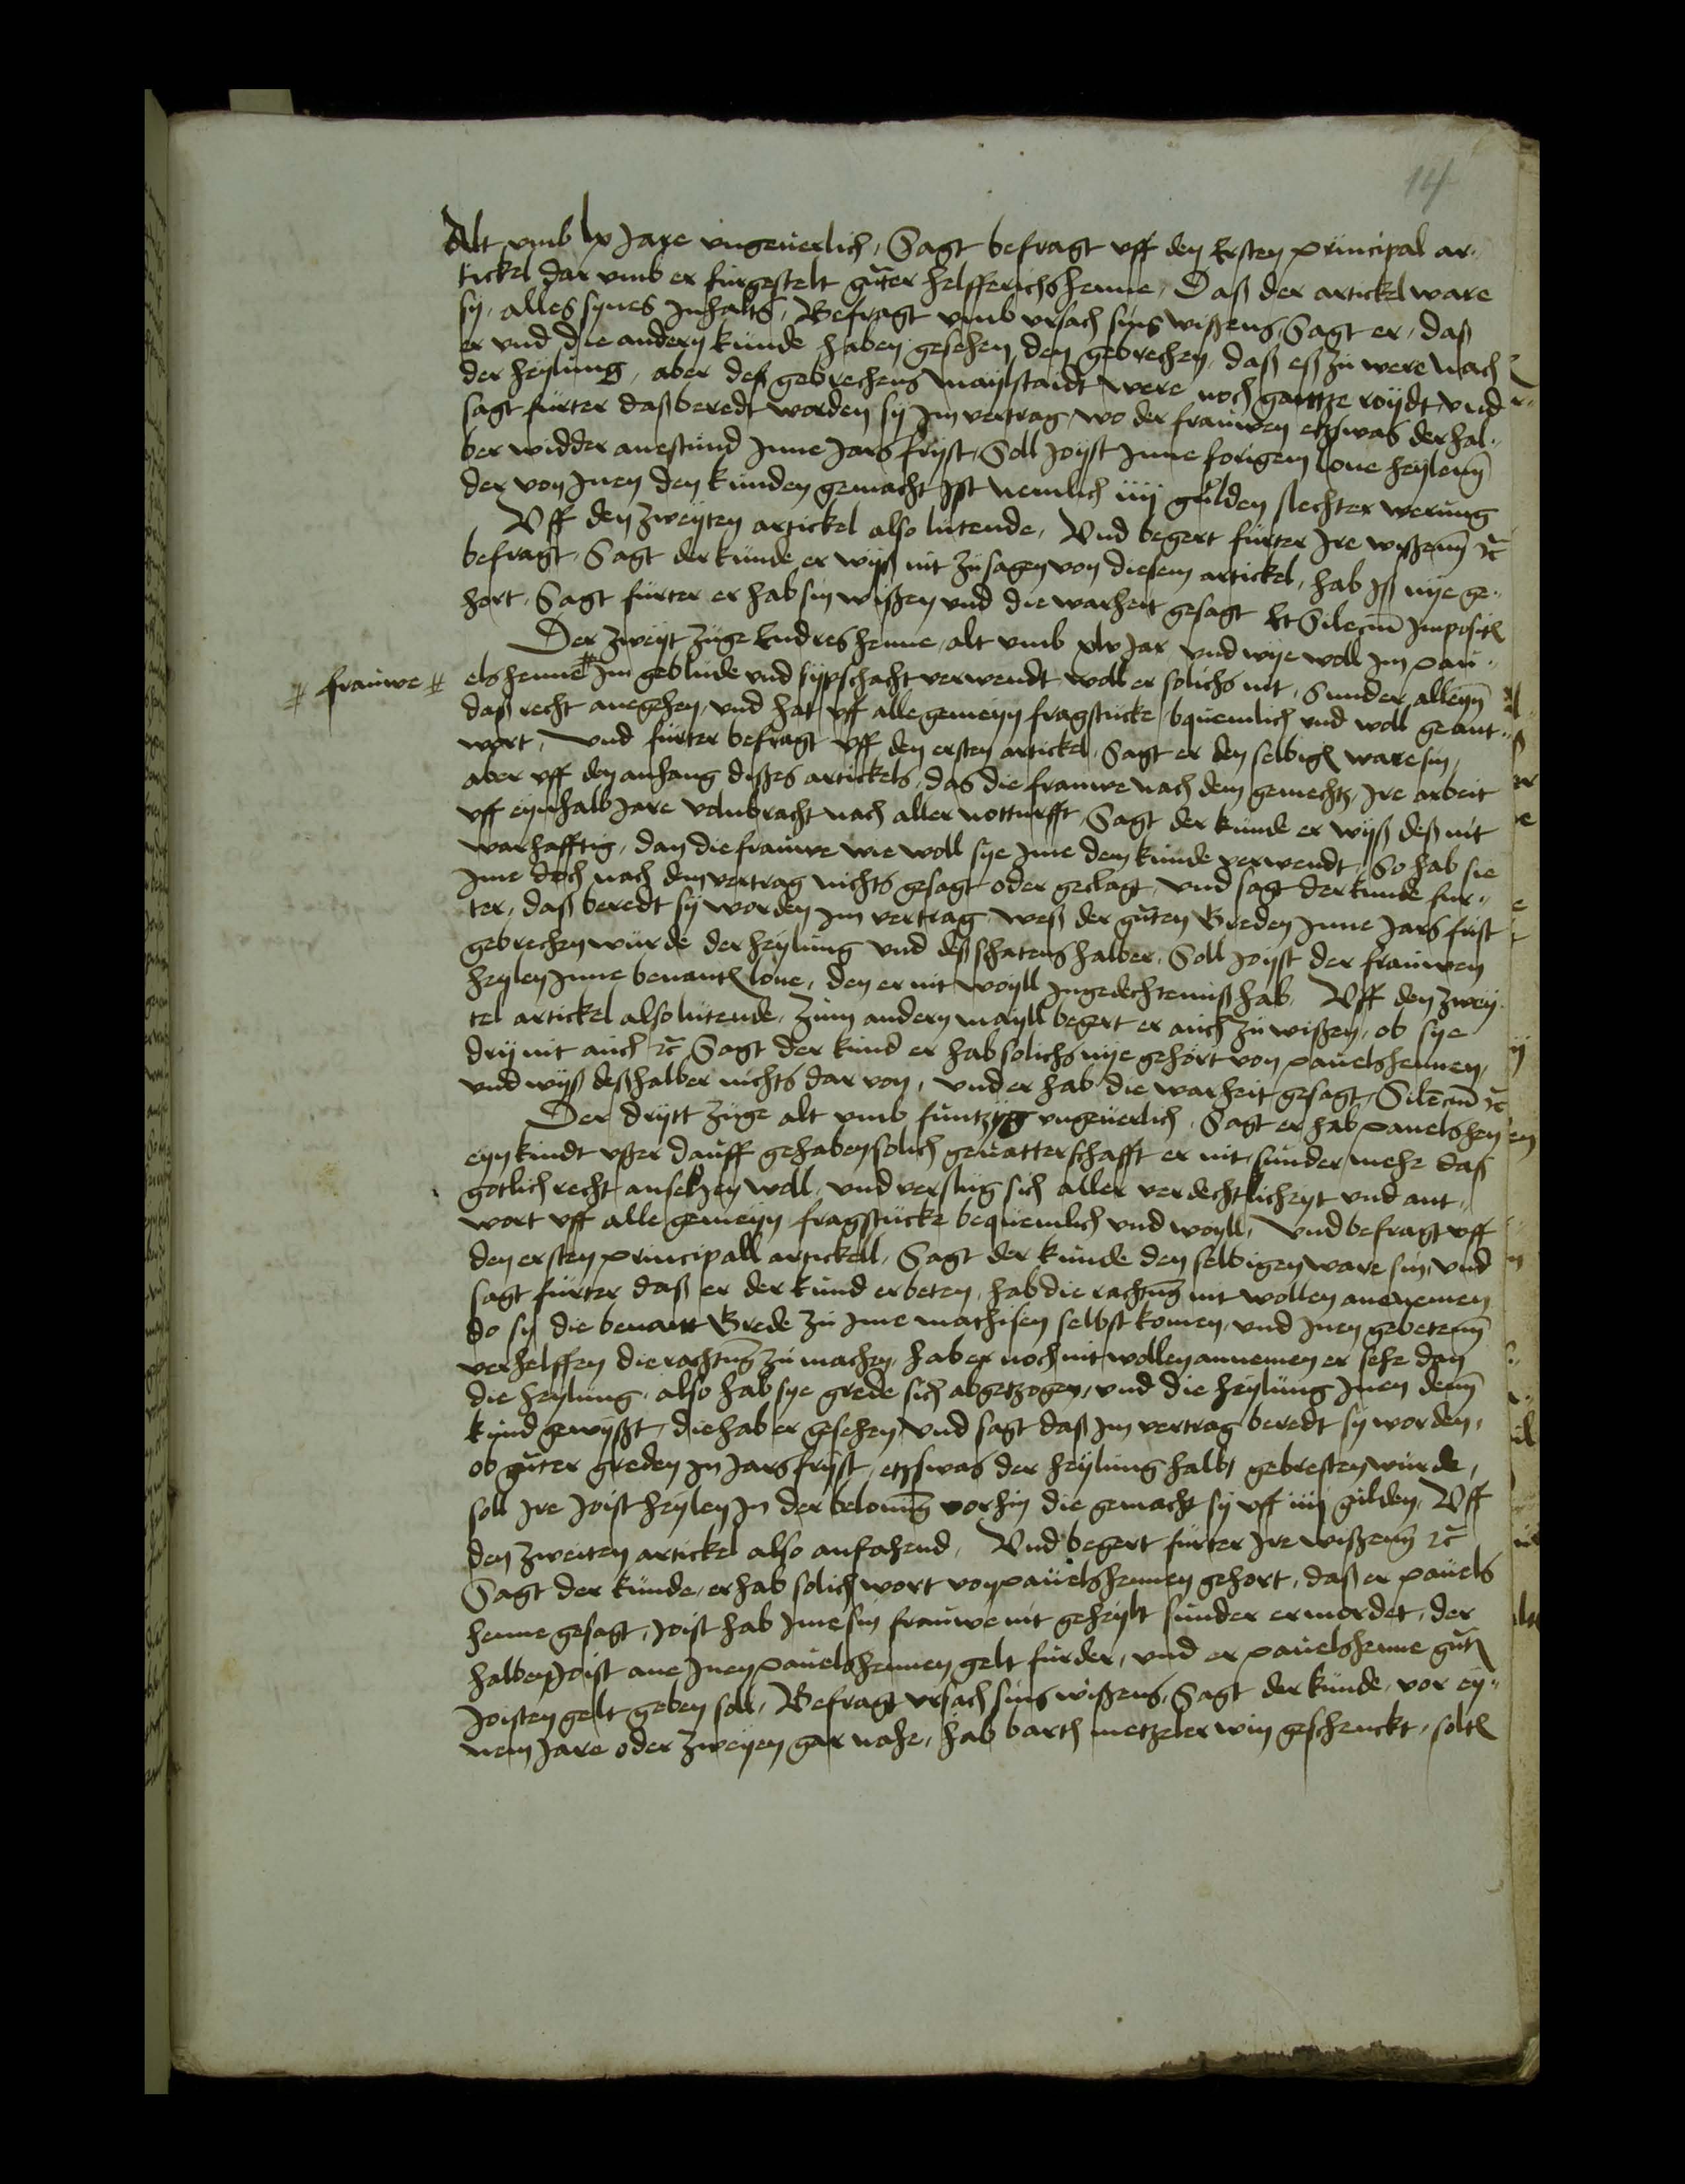 14
Alt vmb lx Jare vngeuerlich, Sagt befragt vff den Ersten principal ar-
tickel dar vmb er furgestelt guter helfferichs henne, Daß der artickel ware
sy, alles synes Jnhalts, Befragt vmb vrsach sins wißens, Sagt er, daß
er vnd die andern kunde haben gesehen den gebrechen, daß eß zu were nach
der heylung, aber deß gebrechens maylstaidt were noch gantze roydt, vnd
sagt furter daß beredt worden sy Jm vertrag, wo der frauwen etzswas der hal-
ber widder anestund Jnne Jars fryst, Soll Joyst Jnne forigem lone heylenn
der von Jnen den kunden gemacht Jst nemlich iiij gulden slechter werung
Vff den zweyten artickel also lutende, Vnd begert furter Jre wißenn etc
befragt, Sagt der kunde er wyß nit zu sagen von diesem artickel, hab Jß nye ge-
hort, Sagt furter er hab sin wißen vnd die warheit gesagt Et Silecium Jmposit
Der zweyt zuge Endres henne, alt vmb xlv Jar vnd wye woll Jm pau-
# frauwe #
els henne # Jm geblude vnd sypschacht verwendt woll er solichs nit, Sunder alleyn
daß recht anegehen, vnd hat vff alle gemeyn fragstucke bquemlich vnd woll geant-
wort, vnd furter befragt vff den ersten artickel, Sagt er den selbig ware sin,
aber vff den anhang dißes artickels, das die frauwe nach dem gemechtz, Jre arbeit
vff eyn halb Jare volnbracht nach aller notturfft, Sagt der kunde er wyß deß nit
warhafftig, dan die frauwe wie woll sye Jme dem kunde verwendt, So hab sie
Jme doch nach dem vertrag nichts gesagt oder geclagt, vnd sagt der kunde fur-
ter, daß beredt sy worden Jm vertrag, weß der guten Greden Jnne Jars frist
gebrechen wurde der heylung vnd deß schatens halber, Soll Joyst der frauwen
heylen Jnne benant lone, den er nit woyll Jngedechtemiß hab, Vff den zwey
tel artickel also lutende, zum andern mayll begert er auch zu wißen, ob sye
dry nit auch etc Sagt der kund er hab solichs nye gehort von pauels hennen,
vnd wyß deßhalber nichts dar von, vnd er hab die warheit gesagt, Silecium etc
Der drytt zuge alt vmb funtzyg vngeuerlich, Sagt er hab pauels hen
eyn kindt vßer dauff gehaben solich geuatterschafft er nit, sunder mehe daß
gotlich recht ansehen woll, vnd verslug sich aller verdechtlicheyt vnd ant-
wort vff alle gemeyn fragstucke bequemlich vnd woyll, vnd befragt vff
den ersten principall artickell, Sagt der kunde den selbigen ware sin, vnd
sagt furter daß er der kund erbeten, hab die rachtung nit wollen anenemen
do sy die benant Grede zu Jme mathisen selbst komen, vnd Jnen gebetenn
verhelffen die rachtung zu machen, hab er noch nit wollen annemen er sehe dan
die heylung, also hab sye grede sich abgetzogen, vnd die heylung Jnen denn
kund gewyßt, die hab er gesehen, vnd sagt daß Jm vertrag beredt sy worden,
ob guter greden Jn Jars fryst, etzswas der heylung halb gebresten wurde,
soll Jre Joist heylen Jn der belonung vorhin die gemacht sy vff iiij gulden, Vff
den zweiten artickel also anfahend, Vnd begert furter Jre wißenn etc
Sagt der kunde, er hab solich wort von pauels hennen gehort, daß er pauels
henne gesagt, Joist hab Jme sin frauwe nit geheylt sunder ermordet, der
halben Joist ane Jnen pauels hennen gelt furder, vnd er pauels henne gut
Joisten gelt geben soll, Befragt vrsach sins wißens, Sagt der kunde, vor ey-
nem Jare oder zweyen gar nahe, hab barth metzeler win geschenckt, solt